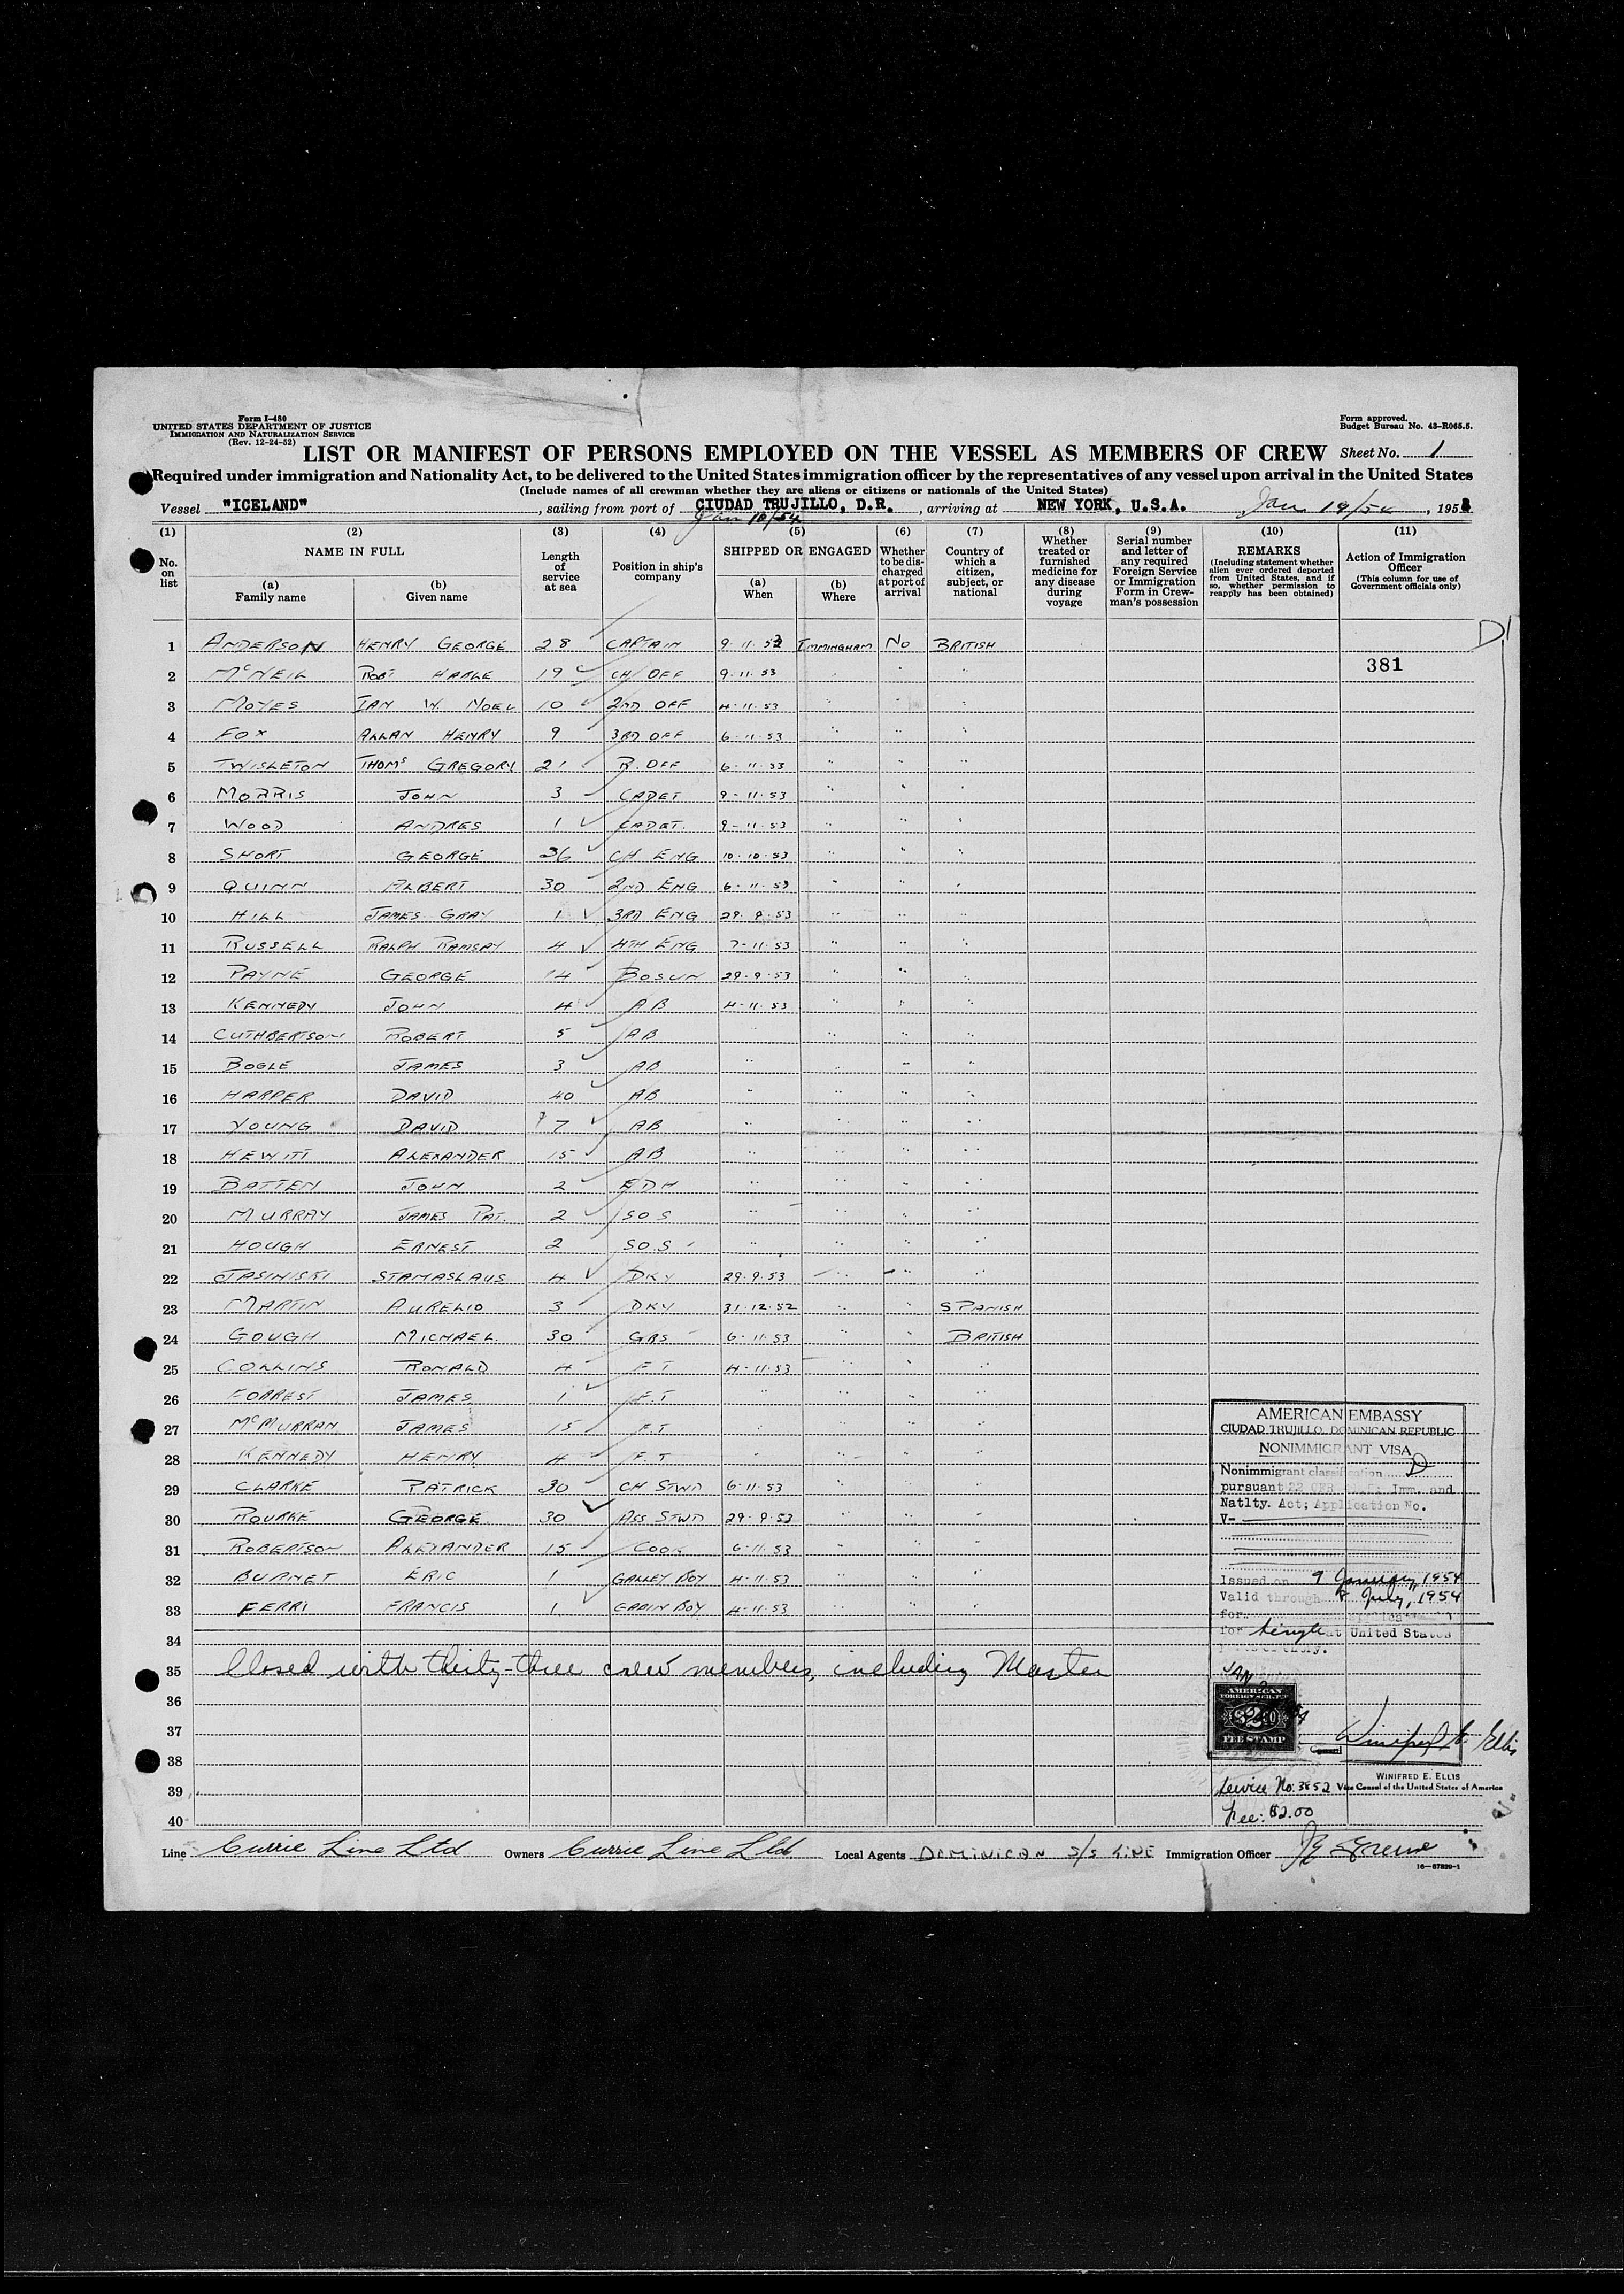 Form I-480
UNITED STATES DEPARTMENT OF JUSTICE
IMMIGRATION AND NATURALIZATION SERVICE
(Rev. 12-24-52)
Form approved.
Budget Bureau No. 43-R065.5.
LIST OR MANIFEST OF PERSONS EMPLOYED ON THE VESSEL AS MEMBERS OF CREW Sheet No. 1
Required under immigration and Nationality Act, to be delivered to the United States immigration officer by the representatives of any vessel upon arrival in the United States
(Include names of all crewman whether they are aliens or citizens or nationals of the United States)
Vessel "ICELAND", sailing from port of CIUDAD TRUJILLO, D.R., arriving at NEW YORK, U.S.A. Jan 19/54, 195
Jan 10/54
(1) (2) (3) (4) (5) (6) (7) (8) (9) (10) (11)
No. on list
NAME IN FULL
(a) Family name
(b) Given name
Length of service at sea
Position in ship's company
SHIPPED OR ENGAGED
(a) When
(b) Where
Whether to be discharged at port of arrival
Country of which a citizen, subject, or national
Whether treated or furnished medicine for any disease during voyage
Serial number and letter of any required Foreign Service or Immigration Form in Crewman's possession
REMARKS
(Including statement whether alien ever ordered deported from United States, and if so, whether permission to reapply has been obtained)
Action of Immigration Officer
(This column for use of Government officials only)
D1
381
1 ANDERSON HENRY GEORGE 28 CAPTAIN 9.11.53 IMMINGHAM NO BRITISH
2 McNEIL ROBT HARLE 19 CH OFF 9.11.53 " "
3 MOYES IAN W. NOEL 10 2ND OFF 4.11.53 " " "
4 FOX ALLAN HENRY 9 3RD OFF 6.11.53 " " "
5 TWISLETON THOMS GREGORY 21 R. OFF 6.11.53 " " "
6 MORRIS JOHN 3 CADET 9-11.53 " " "
7 WOOD ANDRES 1 CADET. 9-11.53 " " "
8 SHORT GEORGE 36 CH ENG 10.10.53 " " "
9 QUINN ALBERT 30 2ND ENG 6.11.53 " " "
10 HILL JAMES GRAY 1 3RD ENG 29.9.53 " " "
11 RUSSELL RALPH RAMSAY 4 4TH ENG 7-11.53 " " "
12 PAYNE GEORGE 14 BOSUN 29.9.53 " " "
13 KENNEDY JOHN 4 AB 4-11.53 " " "
14 CUTHBERTSON ROBERT 5 AB " " " "
15 BOGLE JAMES 3 AB " " " "
16 HARPER DAVID 40 AB " " " "
17 YOUNG DAVID 7 AB " " " "
18 HEWITT ALEXANDER 15 AB " " " "
19 BATTEN JOHN 2 EDH " " " "
20 MURRAY JAMES PAT. 2 SOS " " " "
21 HOUGH ERNEST 2 SOS " " " "
22 JASINISKI STANASLAUS 4 DKY 29.9.53 " " "
23 MARTIN AURELIO 3 DKY 31.12.52 " " SPANISH
24 GOUGH MICHAEL. 30 GRS 6.11.53 " " BRITISH
25 COLLINS RONALD 4 F T 4-11.53 " " "
26 FORREST JAMES 1 F.T " " " "
27 McMURRAN JAMES 15 F.T " " " "
28 KENNEDY HENRY 4 F.T " " " "
29 CLARKE PATRICK 30 CH STWD 6.11.53 " " "
30 ROURKE GEORGE 30 ASS STWD 29.9.53 " " "
31 ROBERTSON ALEXANDER 15 COOK 6.11.53 " " "
32 BURNET ERIC 1 GALLEY BOY 4.11.53 " " "
33 FERRI FRANCIS 1 CABIN BOY 4-11.53 " " "
34
35 Closed with thirty-three crew members, including Master
36
37
38
39
40
AMERICAN EMBASSY
CIUDAD TRUJILLO, DOMINICAN REPUBLIC
NONIMMIGRANT VISA
Nonimmigrant classification D
pursuant 22 CFR Imm. and
Natlty. Act; Application No.
V-
Issued on 9 January, 1954
Valid through 8 July, 1954
for
for single at United States
JAN
AMERICAN
FOREIGN SERVICE
$2.00
FEE STAMP
Winifred E. Ellis
WINIFRED E. ELLIS
Vice Consul of the United States of America
Service No. 3852
Fee: $2.00
Line Currie Line Ltd Owners Currie Line Ltd. Local Agents DOMINICAN S/S LINE Immigration Officer
16-67839-1